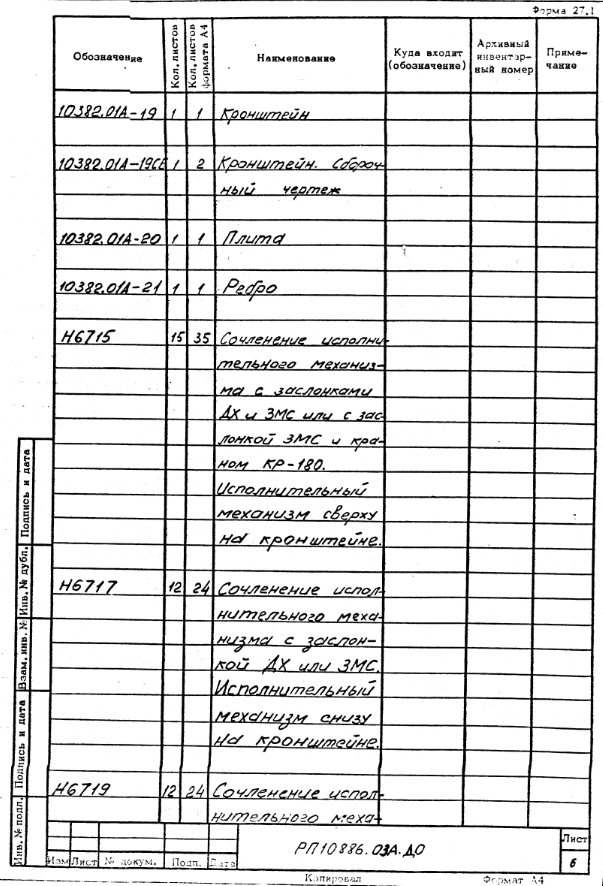 Форма 27.1
Обозначение
Кол. листов
Кол. листов формата А4
Наименование
Куда входит (обозначение)
Архивный инвентарный номер
Примечание
10382.01А-19 1 1 Кронштейн
10382.01А-19СБ 1 2 Кронштейн. Сбороч-
ный чертеж
10382.01А-20 1 1 Плита
10382.01А-21 1 1 Ребро
Н6715 15 35 Сочленение исполни-
тельного механиз-
ма с заслонками
ДХ и ЗМС или с зас-
лонкой ЗМС и кра-
ном КР-180.
Исполнительный
механизм сверху
на кронштейне.
Н6717 12 24 Сочленение испол-
нительного меха-
низма с заслон-
кой ДХ или ЗМС.
Исполнительный
механизм снизу
на кронштейне.
Н6719 12 24 Сочленение испол-
нительного меха-
Инв. № подл.
Подпись и дата
Взам. инв. №
Инв. № дубл.
Подпись и дата
РП10886.03А.Д0
Лист
6
Изм Лист № докум. Подп. Дата
Копировал
Формат А4